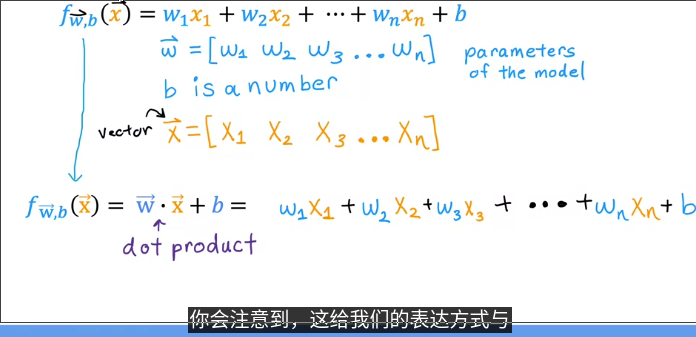 f w⃗,b (x⃗) = w₁x₁ + w₂x₂ + ⋯ + wₙxₙ + b
w⃗ = [w₁ w₂ w₃ ... wₙ] parameters
of the model
b is a number
vector x⃗ = [x₁ x₂ x₃ ... xₙ]
f w⃗,b (x⃗) = w⃗ · x⃗ + b = w₁x₁ + w₂x₂ + w₃x₃ + ··· + wₙxₙ + b
dot product
你会注意到，这给我们的表达方式与